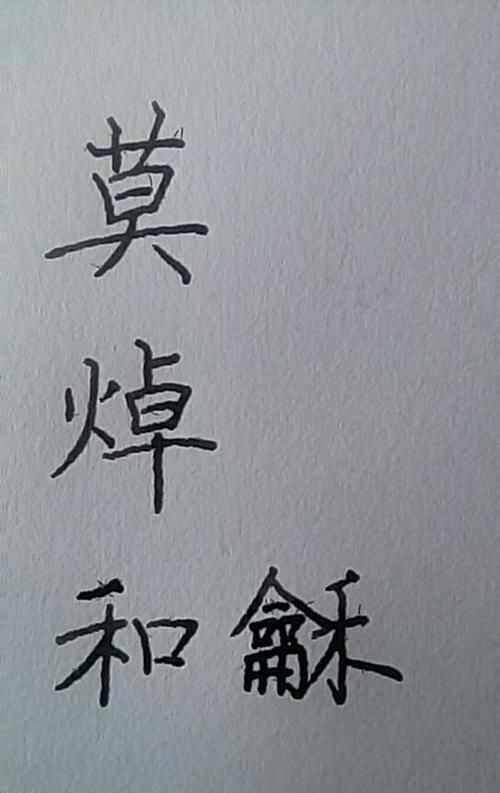 莫
焯
和龢